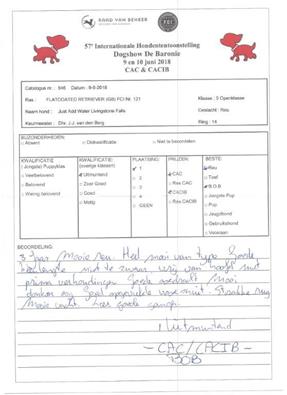 RAAD VAN BEHEER
FCI
57e Internationale Hondententoonstelling
Dogshow De Baronie
9 en 10 juni 2018
CAC & CACIB
Catalogus nr. : 946 Datum : 9-6-2018
Ras : FLATCOATED RETRIEVER (GB) FCI Nr. 121 Klasse : 5 Openklasse
Naam : Just Add Water Livingstone Falls Geslacht : Reu
Keurmeester : Dhr. J.J. van den Berg Ring : 14
BIJZONDERHEDEN:
Absent Diskwalificatie Niet te beoordelen
KWALIFICATIE KWALIFICATIE PLAATSING: PRIJZEN: BESTE:
(Jongste) Puppyklas (overige klassen) 1 Reu
Veelbelovend Uitmuntend 2 CAC Teef
Belovend Zeer Goed 3 Res CAC B.O.B
Weinig belovend Goed 4 CACIB Jongste Pup
Matig GEEN Res CACIB Pup
Jeugdhond
Gebruikshond
Veteraan
BEOORDELING:
3 jaar Mooie reu. Heel mooi van type. Goede
niet te zwaar van hoofd met
prima verhoudingen. Goede Mooi
donker oog. Goed Strakke rug
Mooie vacht. Zeer goede
Uitmuntend
CAC/CACIB
BOB